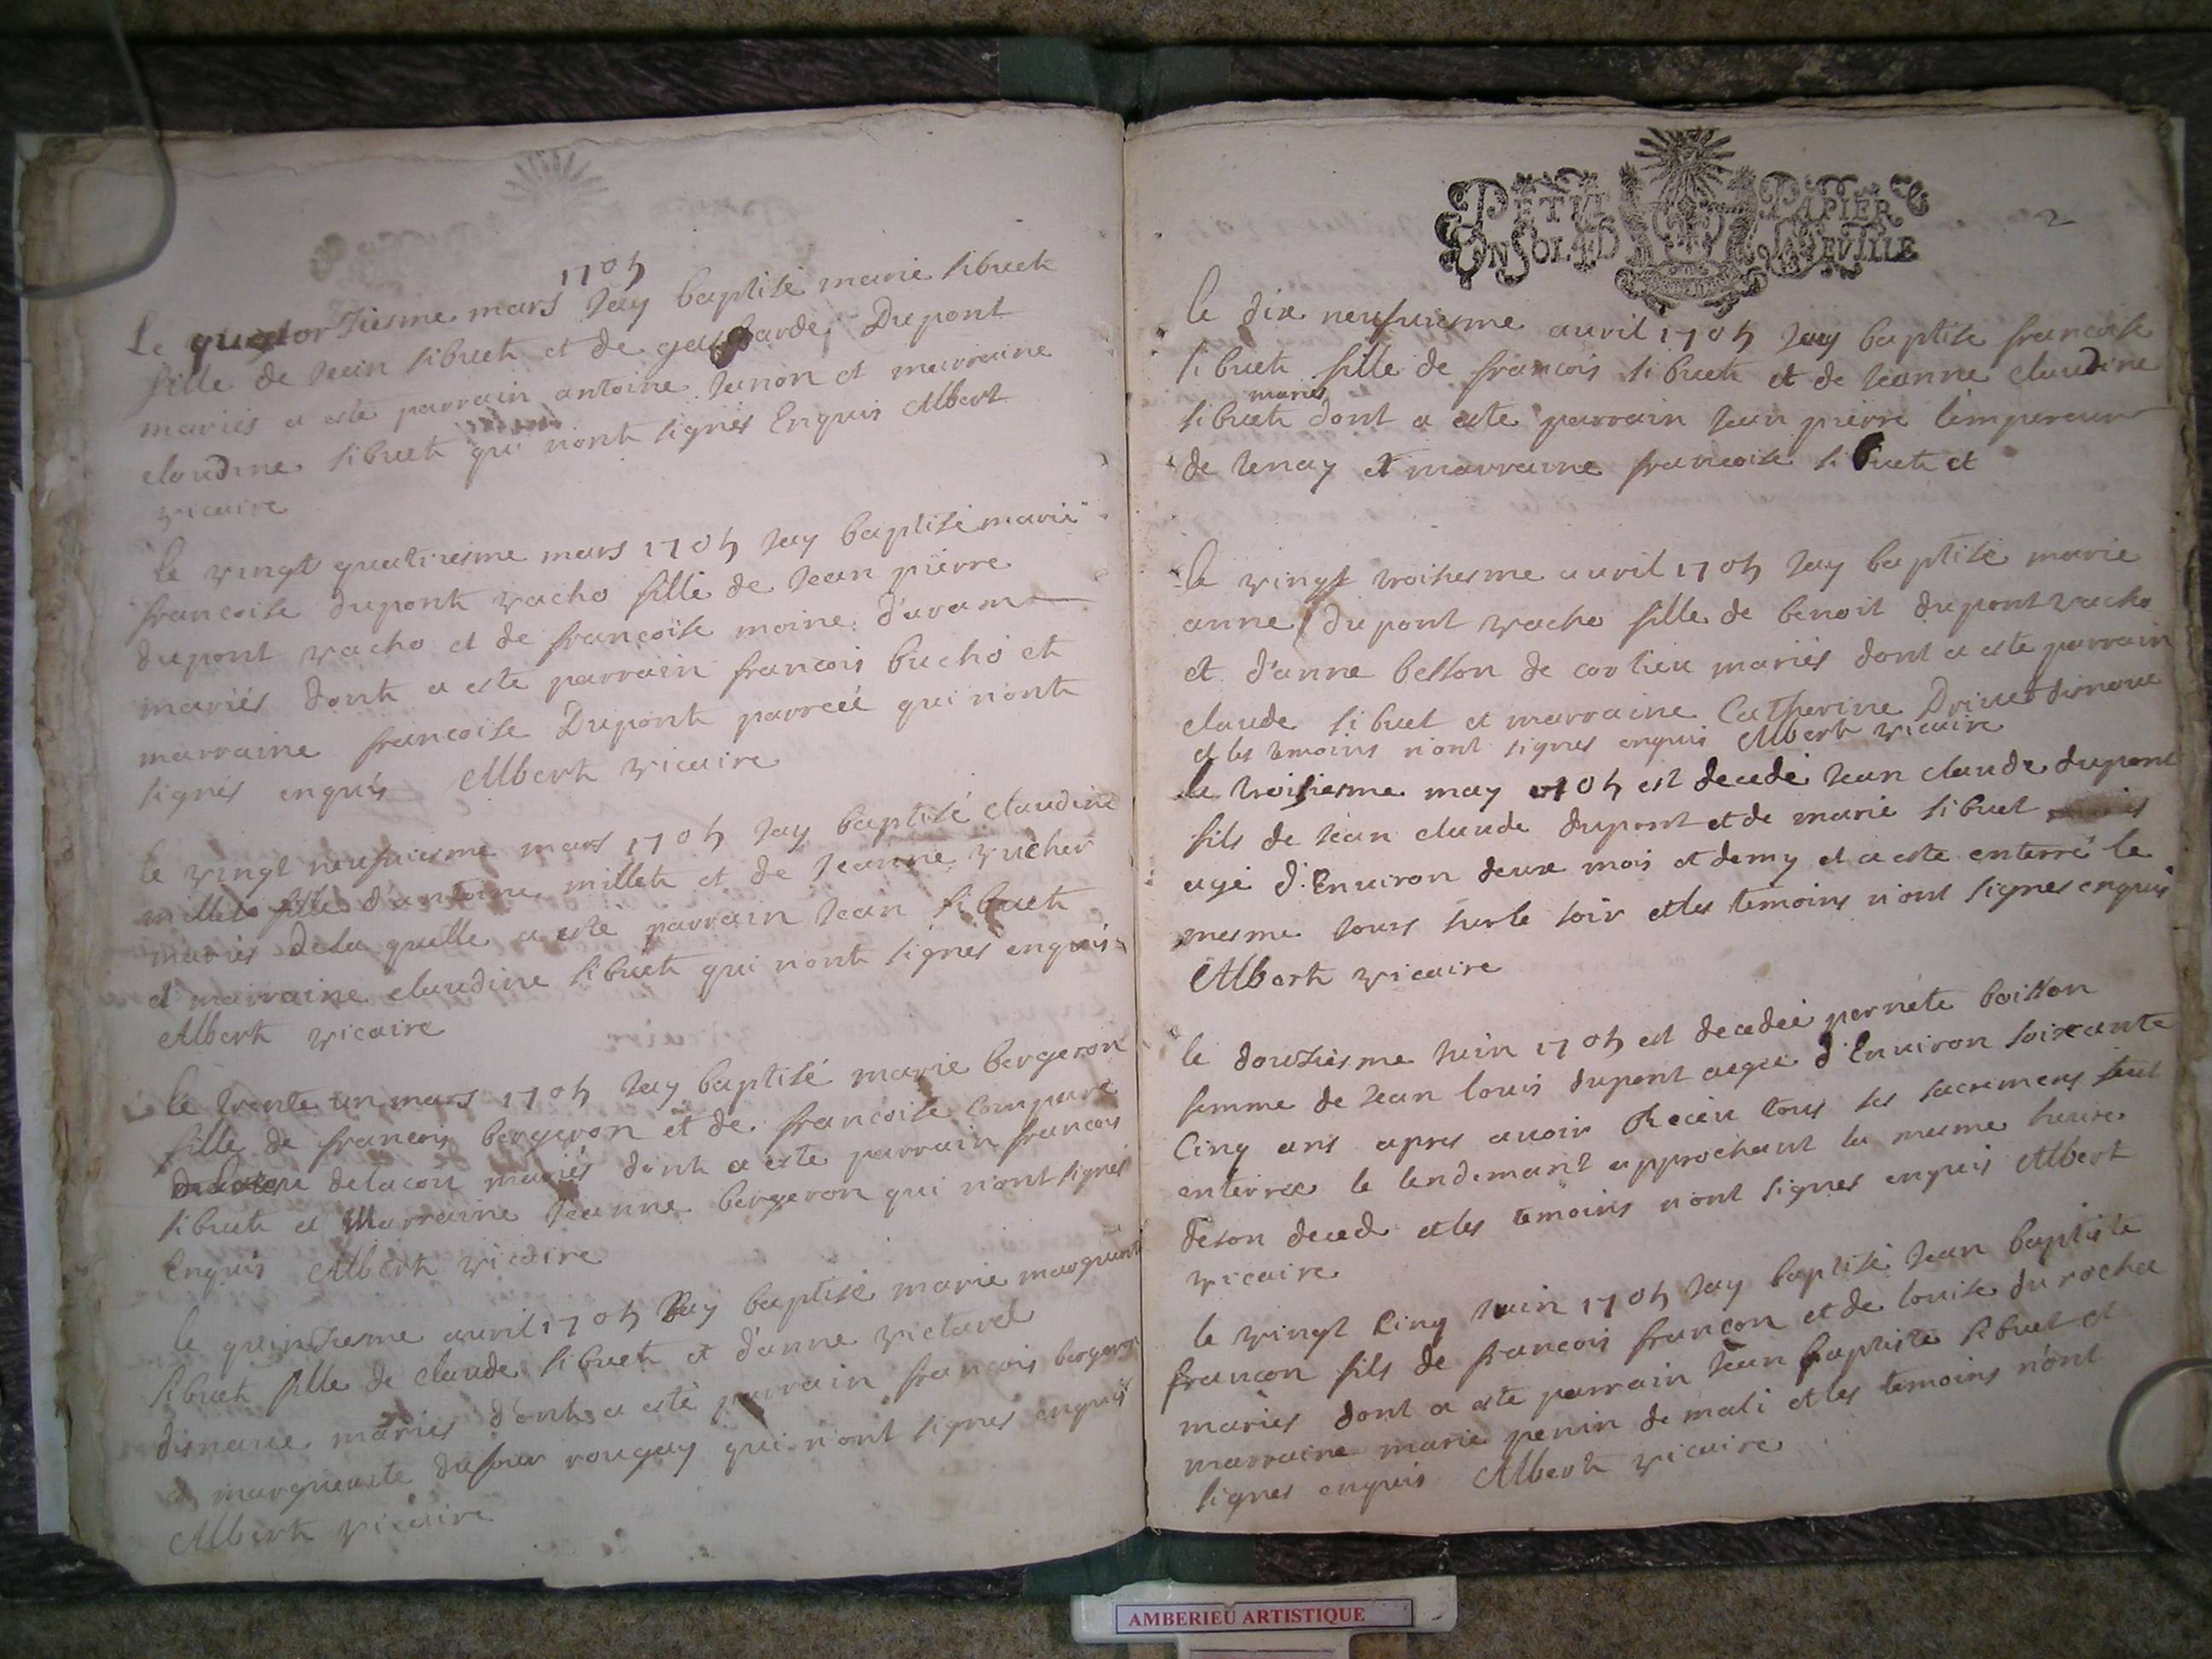 1705
Le quatorziesme mars Jay baptisé marie sibuet
fille de Jean sibuet et de Dupont
mariés a esté parrain antoine Junon et marraine
claudine sibuet qui nont signés Enquis Albert
vicaire
le vingt quatriesme mars 1705 Jay baptisé marie
francoise dupont vacho fille de Jean pierre
dupont vacho et de francoise moine d'aram
mariés dont a esté parrain francois bucho et
marraine francoise Dupont qui n'ont
signés enquis Albert vicaire
le vingt neufuiesme mars 1705 Jay baptisé claudine
millet fille d'antoine millet et de Jeanne vucher
mariés dela quelle a esté parrain Jean sibuet
et marraine claudine sibuet qui n'ont signés enquis
Albert vicaire
le trente un mars 1705 Jay baptisé marie bergeron
fille de francois bergeron et de francoise compare
delacou mariés dont a esté parrain francois
sibuet et Marraine Jeanne bergeron qui n'ont signés
Enquis Albert vicaire
le quinziesme auril 1705 Jay baptisé marie
sibuet fille de claude sibuet et d'anne victard
disnaue mariés dont a esté parrain francois bergeron
et marguerite dufour rougay qui n'ont signés enquis
Albert vicaire
PETIT PAPIER
UN SOL LA FEVILLE
2
le dix neufuiesme auril 1705 Jay baptisé francoise
sibuet fille de francois sibuet et de Jeanne claudine
mariés
sibuet dont a esté parrain Jean pierre l'empereur
de tenay et marraine francoise sibuet et
le vingt troisiesme auril 1705 Jay baptisé marie
anne dupont vacho fille de benoit dupont vacho
et d'anne besson de corlieu mariés dont a esté parrain
claude sibuet et marraine Catherine Driuet disnoue
et les temoins n'ont signés enquis Albert vicaire
le troisiesme may 1705 est decedé Jean claude dupont
fils de Jean claude dupont et de marie sibuet
agé d'Enuiron deux mois et demy et a esté enterré le
mesme Jours sur le soir et les temoins n'ont signes enquis
Albert vicaire
le douziesme Juin 1705 est decedeé pernete boisson
femme de Jean louis dupont ageé d'Enuiron soixante
Cinq ans apres auoir Receu tous ses sacremens
enterree le lendemant approchant la mesme heure
de son deced et les temoins n'ont signes enquis Albert
vicaire
le vingt Cinq Juin 1705 Jay baptisé Jean baptiste
francon fils de francois francon et de louise du rocha
mariés dont a esté parrain Jean baptiste sibuet et
marraine marie penin de mali et les temoins n'ont
signes enquis Albert vicaire
AMBERIEU ARTISTIQUE